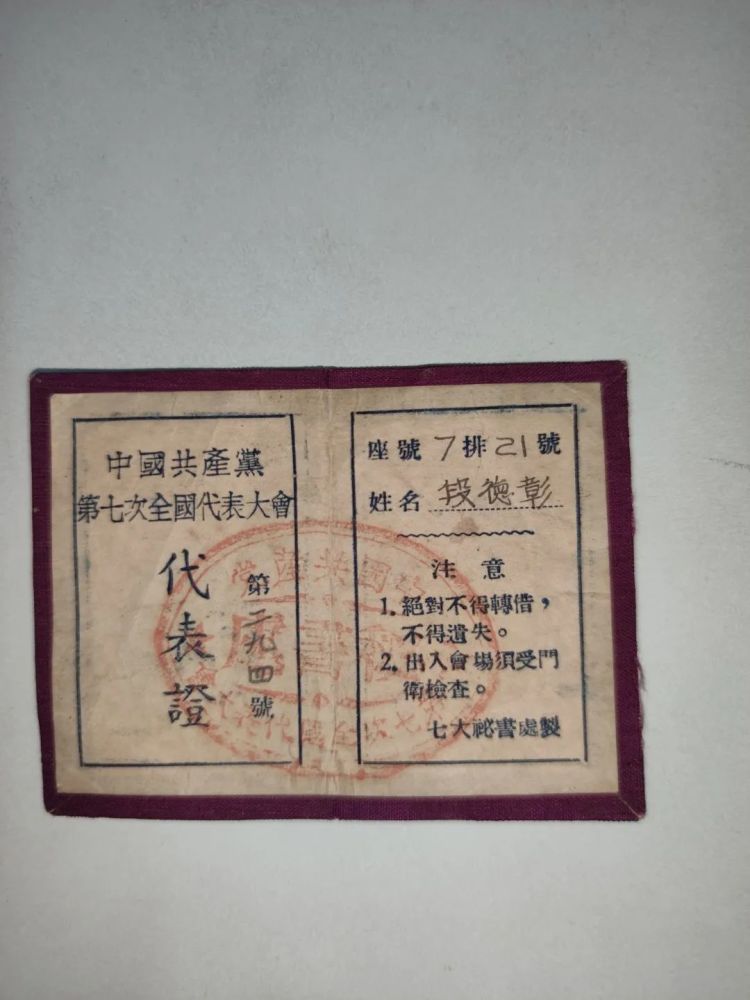 中國共產黨
第七次全國代表大會
代表證
第二九四號
座號 7 排 21 號
姓名 段德彰
注意
1. 絕對不得轉借，
不得遺失。
2. 出入會場須受門
衛檢查。
七大祕書處製